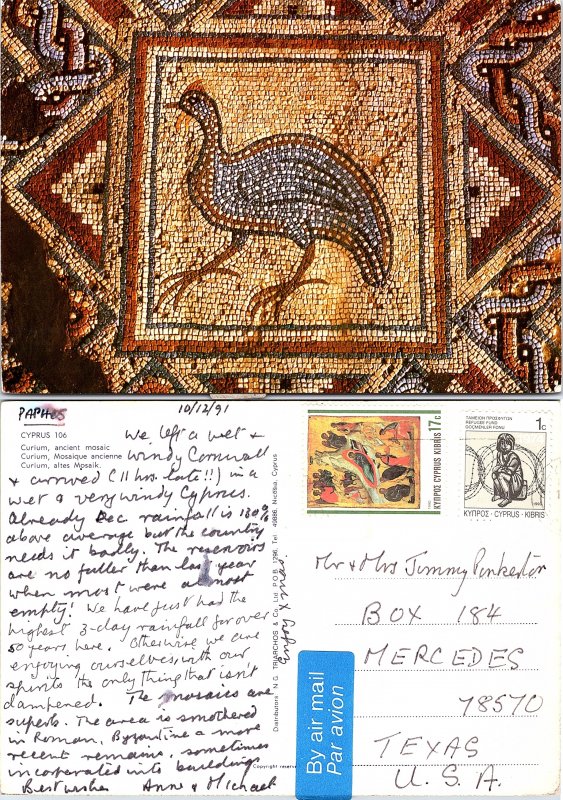 PAPHOS
10/12/91
CYPRUS 106
Curium, ancient mosaic
Curium, Mosaique ancienne
Curium, altes Mosaik.
We left a wet &
windy Cornwall
& arrived (11 hrs. late!!) in a
wet & very windy Cyprus.
Already Dec rainfall is 180%
above average but the country
needs it badly. The resevoirs
are no fuller than last year
when most were almost
empty! We have just had the
highest 3-day rainfall for over
50 years, here. Otherwise we are
enjoying ourselves, with our
spirits the only thing that isn't
dampened. The mosaics are
superb. The area is smothered
in Roman, Byzantine & more
recent remains, sometimes
incorporated into buildings
Best wishes Anne & Michael
Distributors N.G. TRIARCHOS & Co. Ltd. P.O.B. 1296, Tel. 49886, Nicosia, Cyprus
Copyright reserve
By air mail
Par avion
17c
ΚΥΠΡΟΣ CYPRUS KIBRIS
ΤΑΜΕΙΟΝ ΠΡΟΣΦΥΓΩΝ
REFUGEE FUND
GÖÇMENLER FONU
1c
ΚΥΠΡΟΣ · CYPRUS · KIBRIS
Mr & Mrs Jimmy Pinkerton
BOX 184
MERCEDES
78570
TEXAS
U.S.A.